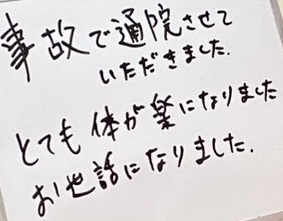 事故で通院させて
いただきました.
とても体が楽になりました
お世話になりました.